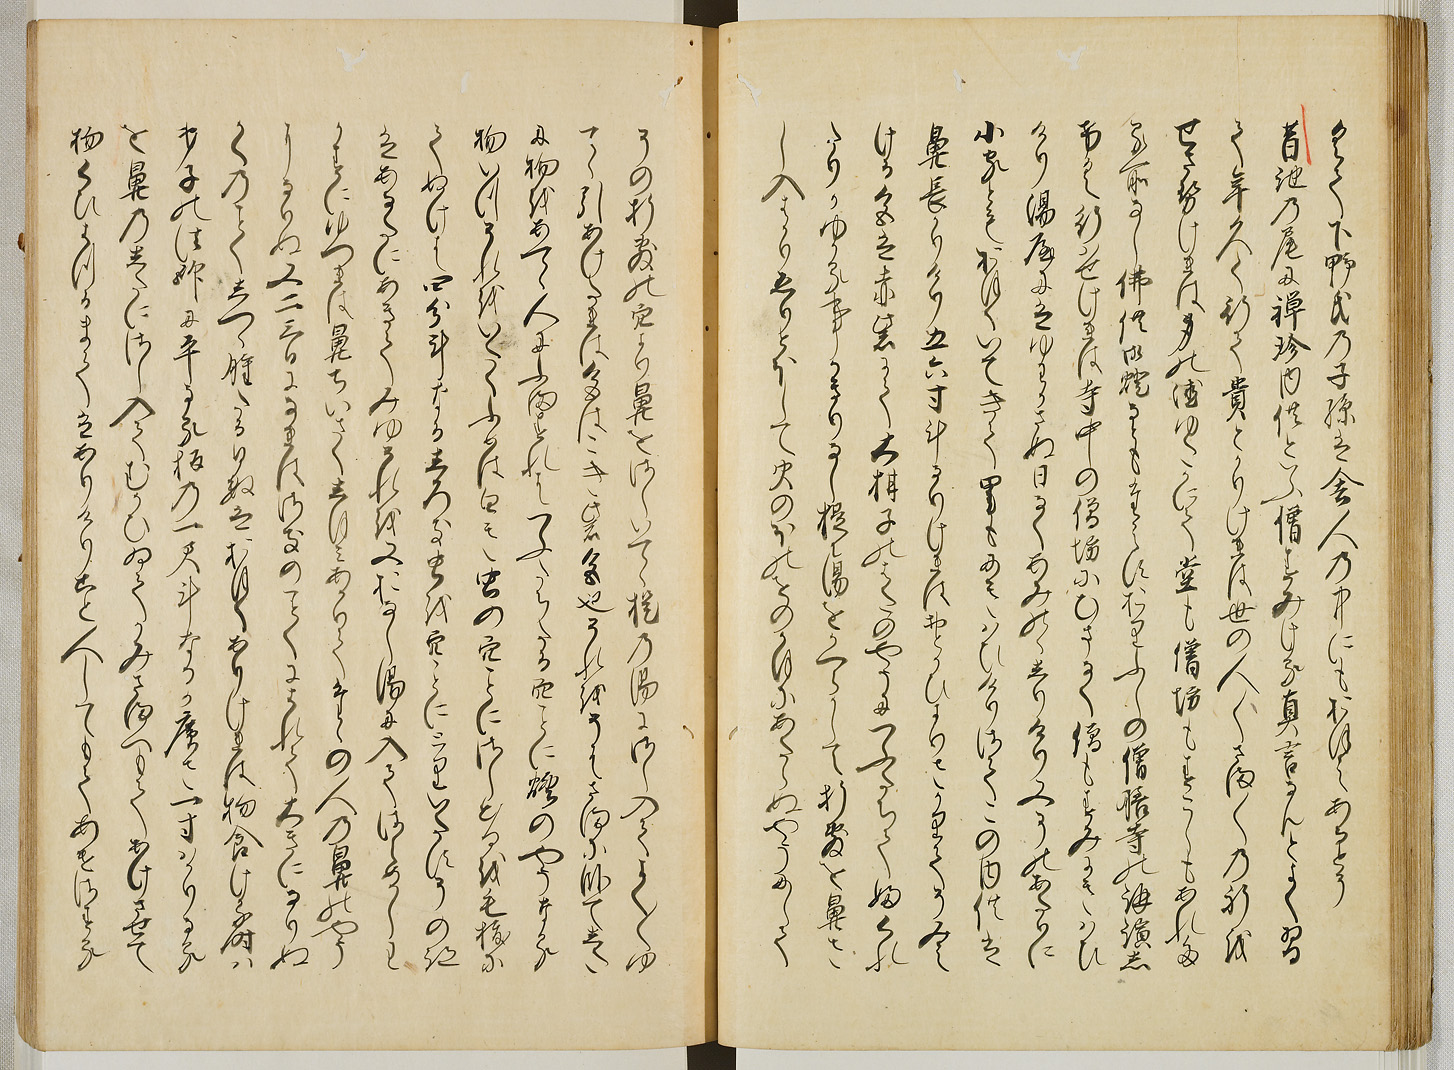 かくて下野氏の子孫は舎人の中にもおほくあるとそ
昔池の尾に禅珍内供といふ僧すみける真言なんとよく習
て年久く行て貴とかりけれは世の人〳〵さま〳〵の祈を
せさせけれは身の徳ゆたかにて堂も僧坊もすこしもあれた
る所なし佛供御燈なともたえすおりふしの僧膳寺の講演し
けく行はせけれは寺中の僧坊にひまなく僧もすみにきはひ
けり湯屋にはゆわかさぬ日なくあみのゝしりけり又そのあたりに
小家ともおほくいてきて里もにきはひけりさてこの内供は
鼻長かりけり五六寸斗なりけれはおとかひよりさかりてそみえ
ける色は赤紫にて大柑子のはたのやうにつふたちてふくれ
たりかゆかる事かきりなし提に湯をかへらかして折敷を鼻さ
し入はかりゑりとほして火のほのかほにあたらぬやうにして
その折敷の穴より鼻をさしいてゝ提の湯にさし入てよく〳〵ゆ
てゝ引あけたれは色はこき紫色也それをそはさまに臥てした
に物をあてゝ人にふますれはつふたちたる穴ことに煙のやうなる
物いつそれをいたくふめは白き虫の穴ことにさし出るを毛抜に
てぬけは四分斗なるしろき虫を穴ことにとりいたすその跡
はあなたにあきてみゆそれを又おなし湯に入てさらめかしわ
かすにゆつれは鼻ちいさくしほみあかりてたゝの人の鼻のやう
になりぬ又二三日になれはさきのことくにはれて大きになりぬ
かくのことくしつゝ腫たる日数はおほくありけれは物食ける時は
弟子の法師に平なる板の一尺斗なるか廣さ一寸はかりなる
を鼻のしたにさし入てむかひゐてかみさまへもてあけさせて
物くひはつるまてはありけりこと人してもてあけさする